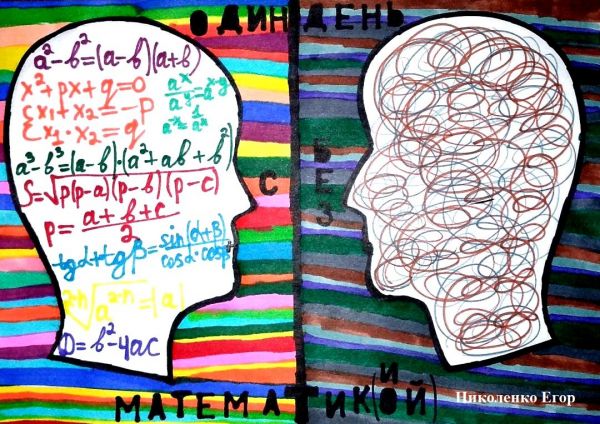 ОДИН ДЕНЬ
a²-b²=(a-b)(a+b)
x²+px+q=0
{x₁+x₂=-p
{x₁·x₂=q
aˣ/aʸ=aˣ⁻ʸ
a⁻ˣ=1/aˣ
a³-b³=(a-b)·(a²+ab+b²)
S=√p(p-a)(p-b)(p-c)
p=a+b+c/2
tgα+tgβ=sin(α+β)/cosα·cosβ
²ⁿ√a²ⁿ=|a|
D=b²-4ac
С
БЕЗ
МАТЕМАТИК(ОЙ)
И
Николенко Егор